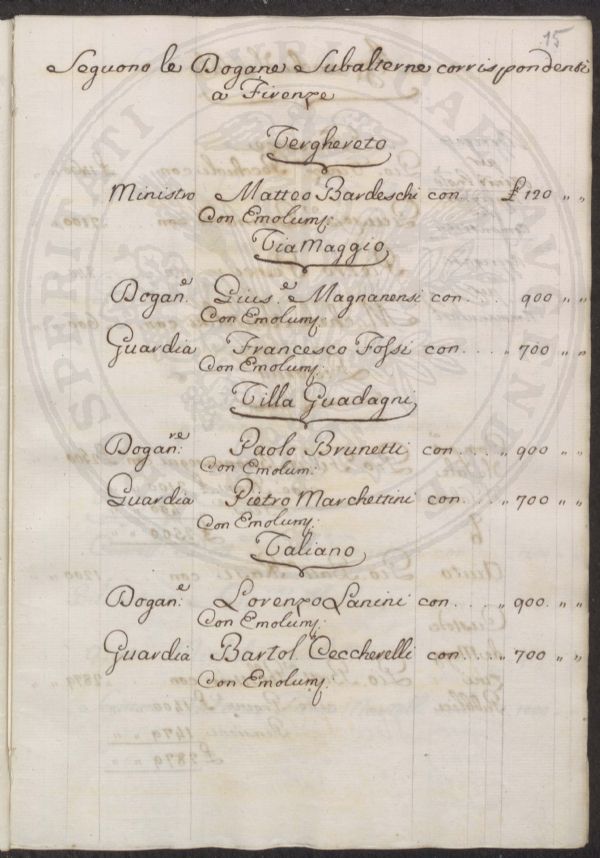 15
Seguono le Dogane Subalterne corrispondenti
a Firenze
Verghereto
Ministro Matteo Bardeschi con £ 120 " "
Con Emolumj:
Via Maggio
Dogan.e Gius.e Magnanensi con... 900 " "
Con Emolumj:
Guardia Francesco Fossi con.... " 700 " "
Con Emolumj:
Villa Guadagni
Dogan.re Paolo Brunetti con.... " 900 " "
Con Emolum:
Guardia Pietro Marchettini con.... " 700 " "
Con Emolumj:
Valiano
Dogan.e Lorenzo Lanini con.... " 900. " "
Con Emolumj:
Guardia Bartol. Ceccherelli con.... " 700 " "
Con Emolumj: